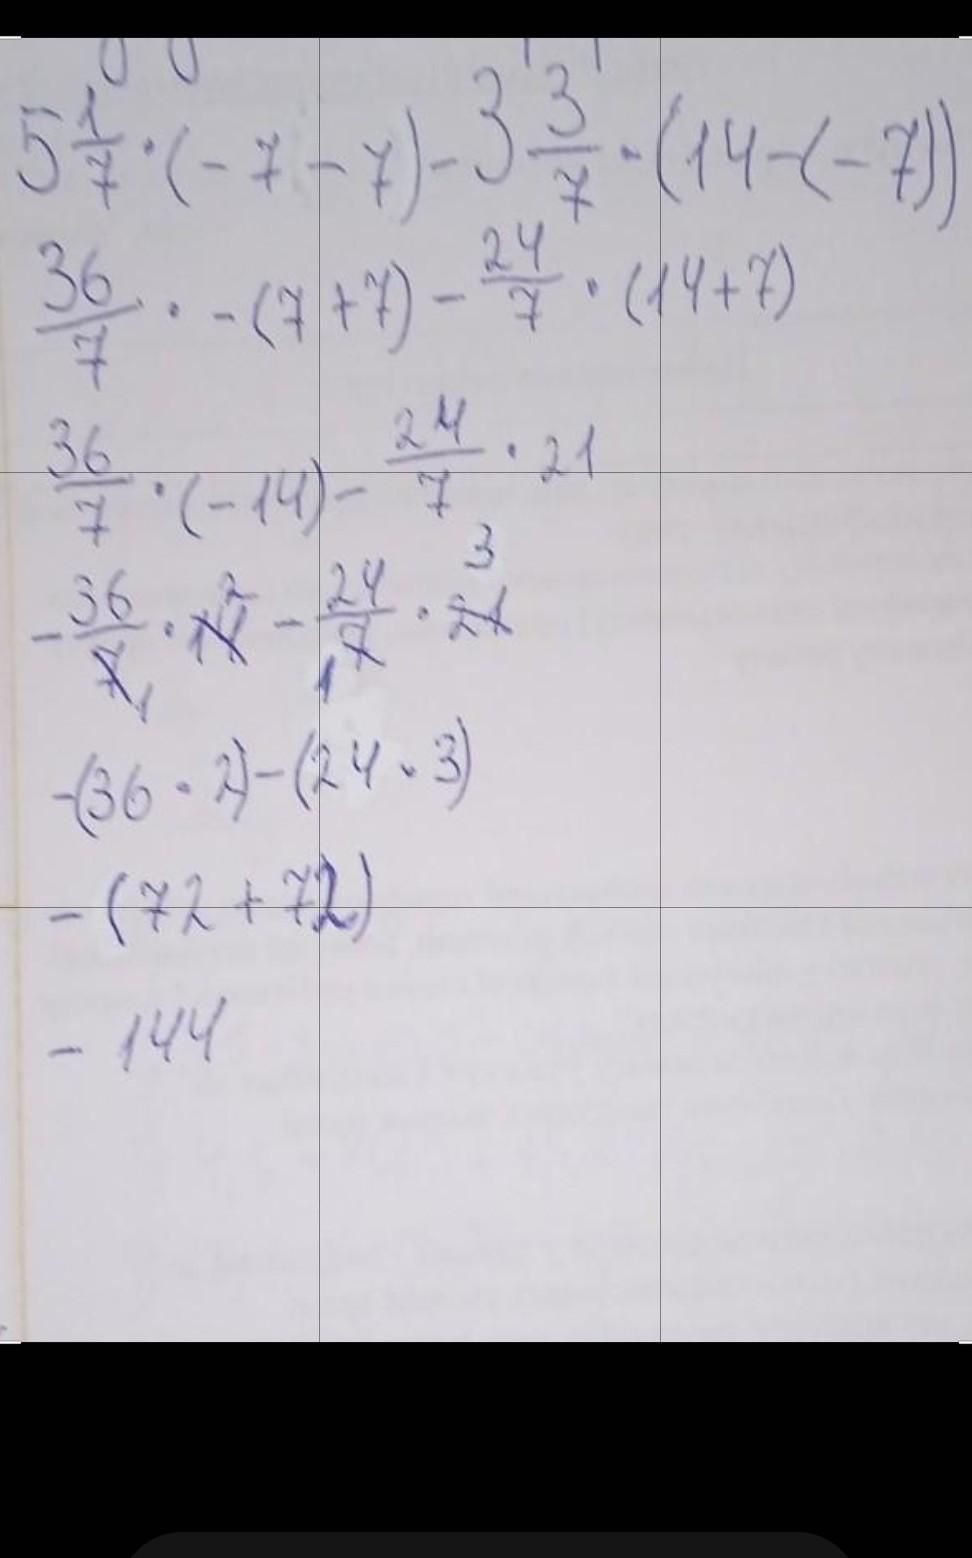 5 1/7 · (-7-7) - 3 3/7 · (14-(-7))
36/7 · -(7+7) - 24/7 · (14+7)
36/7 · (-14) - 24/7 · 21
- 36/7 1 · 14 2 - 24/7 1 · 21 3
-(36 · 2) - (24 · 3)
- (72 + 72)
- 144